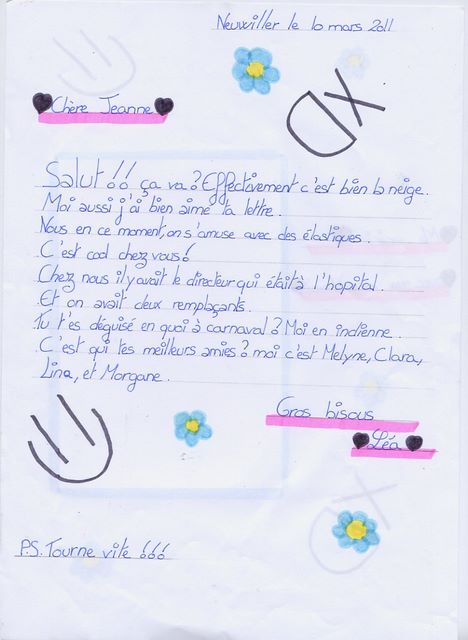 Neuwiller le 10 mars 2011
Chère Jeanne
Salut!! ça va? Effectivement c'est bien la neige.
Moi aussi j'ai bien aimé ta lettre.
Nous en ce moment, on s'amuse avec des élastiques.
C'est cool chez vous!
Chez nous il y avait le directeur qui était à l'hopital.
Et on avait deux remplaçants.
Tu t'es déguisé en quoi à carnaval? Moi en indienne.
C'est qui tes meilleurs amies? moi c'est Melyne, Clara,
Lina, et Morgane.
Gros bisous
Léa
P.S. Tourne vite !!!